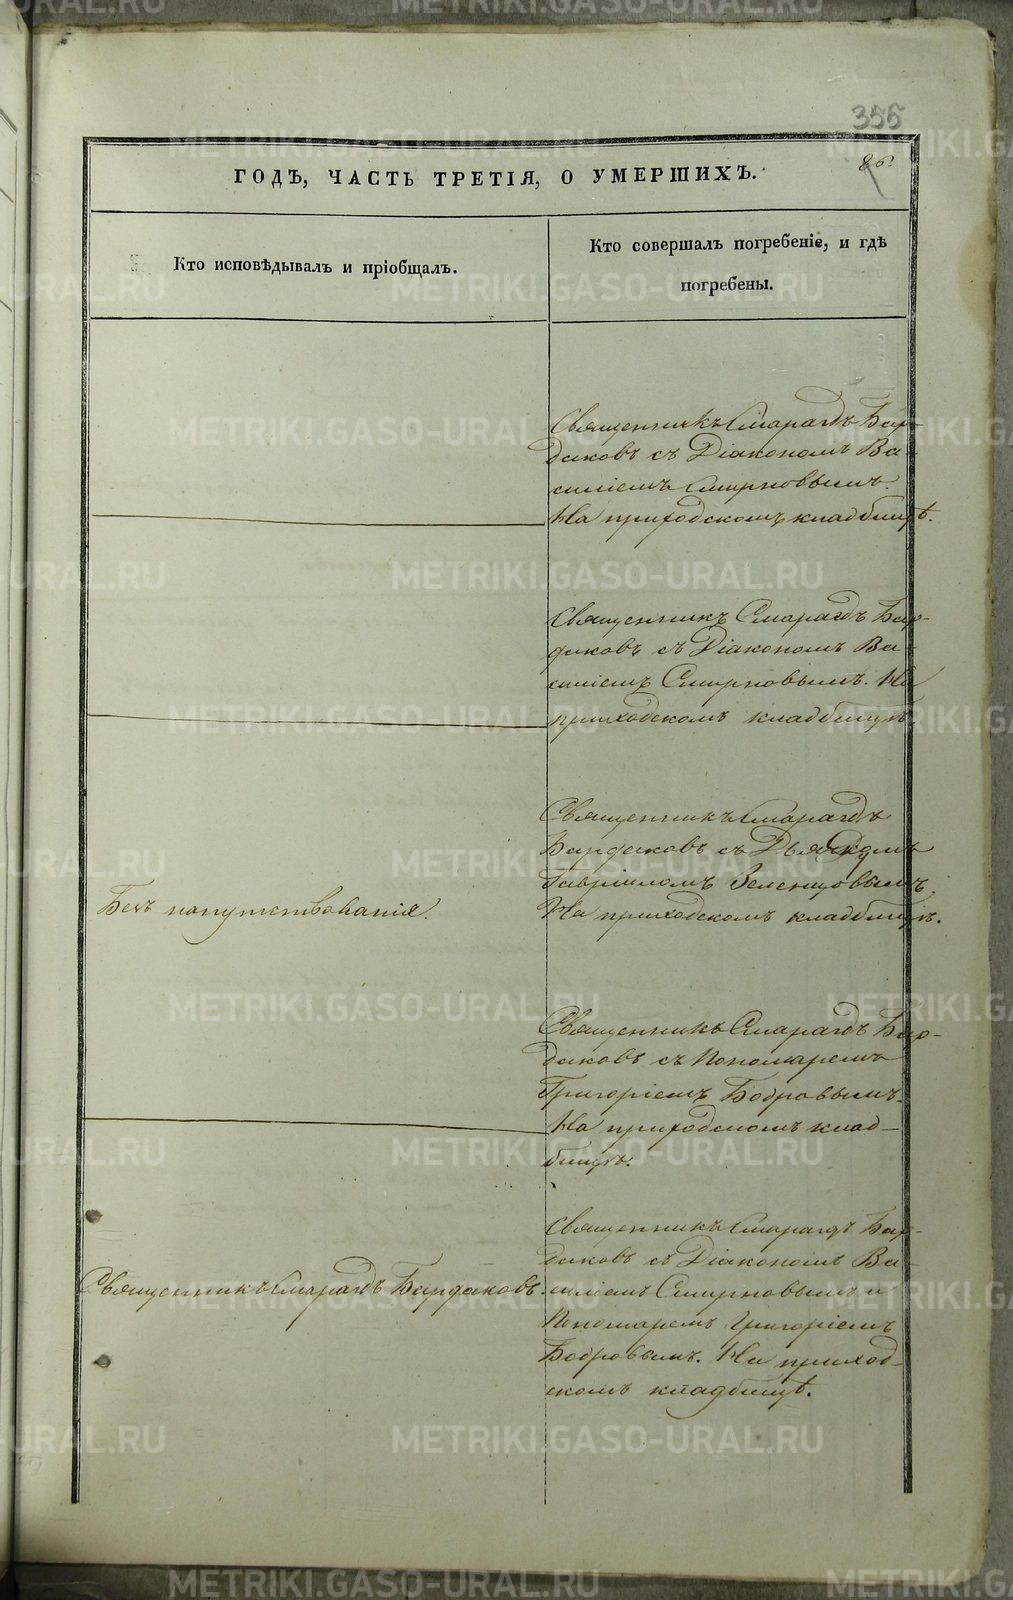 355
86.
ГОДЪ, ЧАСТЬ ТРЕТІЯ, О УМЕРШИХЪ.
Кто исповѣдывалъ и пріобщалъ.
Кто совершалъ погребеніе, и гдѣ
погребены.
Священникъ Смарагдъ Бар-
даковъ съ Діакономъ Ва-
силіемъ Смирновымъ.
На приходскомъ кладбищѣ.
Священникъ Смарагдъ Бар-
даковъ съ Діакономъ Ва-
силіемъ Смирновымъ. На
приходскомъ кладбищѣ.
Безъ напутствованія.
Священникъ Смарагдъ
Бардаковъ съ Дьячкомъ
Гавріиломъ Зеленцовымъ.
На приходскомъ кладбищѣ.
Священникъ Смарагдъ Бар-
даковъ съ Пономаремъ
Григоріемъ Бобровымъ.
На приходскомъ клад-
бищѣ.
Священникъ Смарагдъ Бардаковъ.
Священникъ Смарагдъ Бар-
даковъ съ Діакономъ Ва-
силіемъ Смирновымъ и
Пономаремъ Григоріемъ
Бобровымъ. На приход-
скомъ кладбищѣ.
METRIKI.GASO-URAL.RU